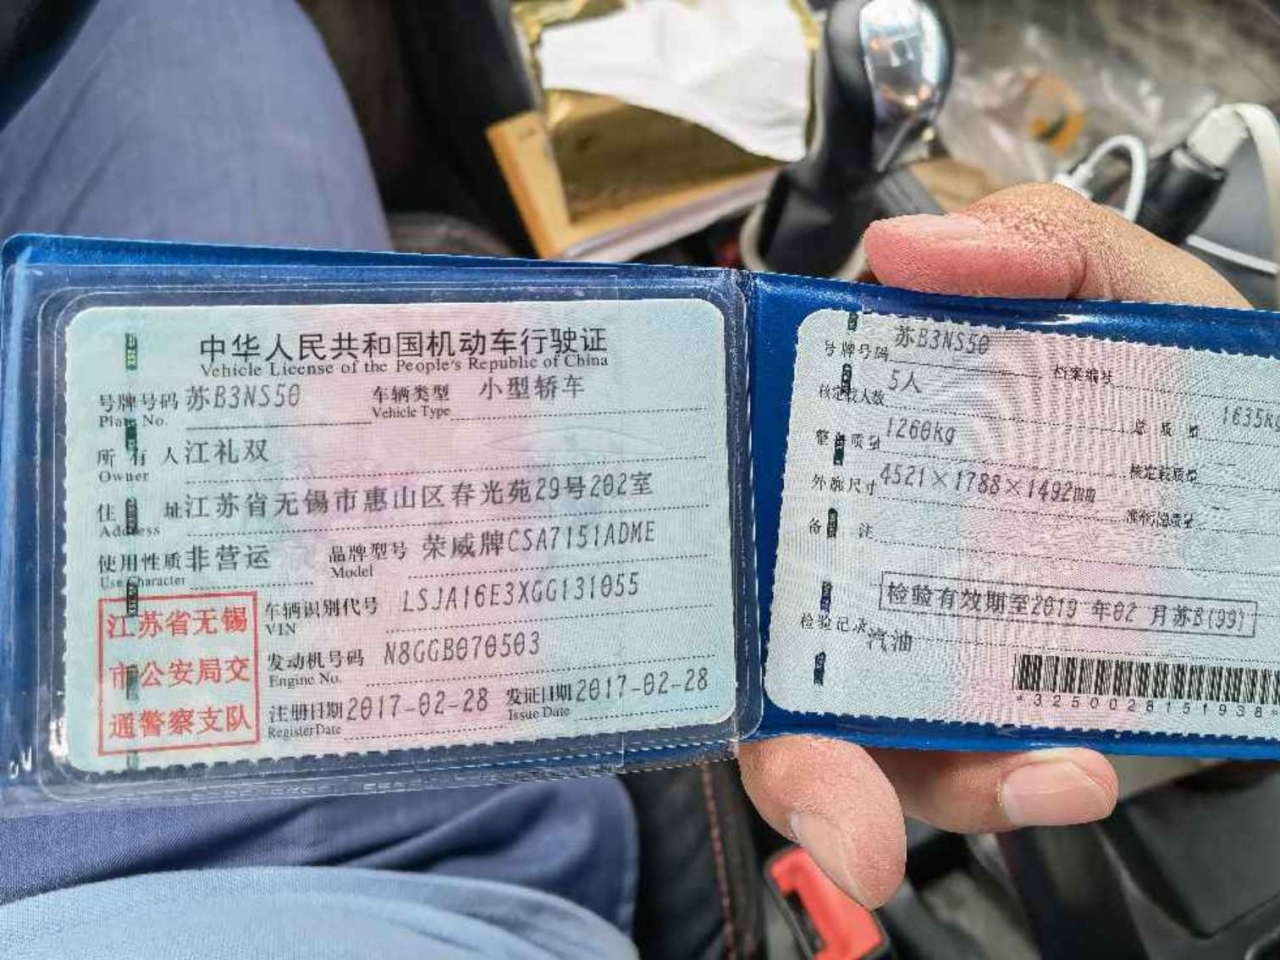 中华人民共和国机动车行驶证
Vehicle License of the People's Republic of China
号牌号码 苏B3NS50 车辆类型 小型轿车
Plate No. Vehicle Type
所有人 江礼双
Owner
住址 江苏省无锡市惠山区春光苑29号202室
Address
使用性质 非营运 品牌型号 荣威牌CSA7151ADME
Use Character Model
江苏省无锡
市公安局交
通警察支队
车辆识别代号 LSJA16E3XGG131055
VIN
发动机号码 N8GGB070503
Engine No.
注册日期 2017-02-28 发证日期 2017-02-28
Register Date Issue Date
号牌号码 苏B3NS50 档案编号
核定载人数 5人 总质量 1635kg
整备质量 1260kg 核定载质量 --
外廓尺寸 4521×1788×1492mm 准牵引总质量 --
备注
检验有效期至2019 年02 月苏B(99)
检验记录 汽油